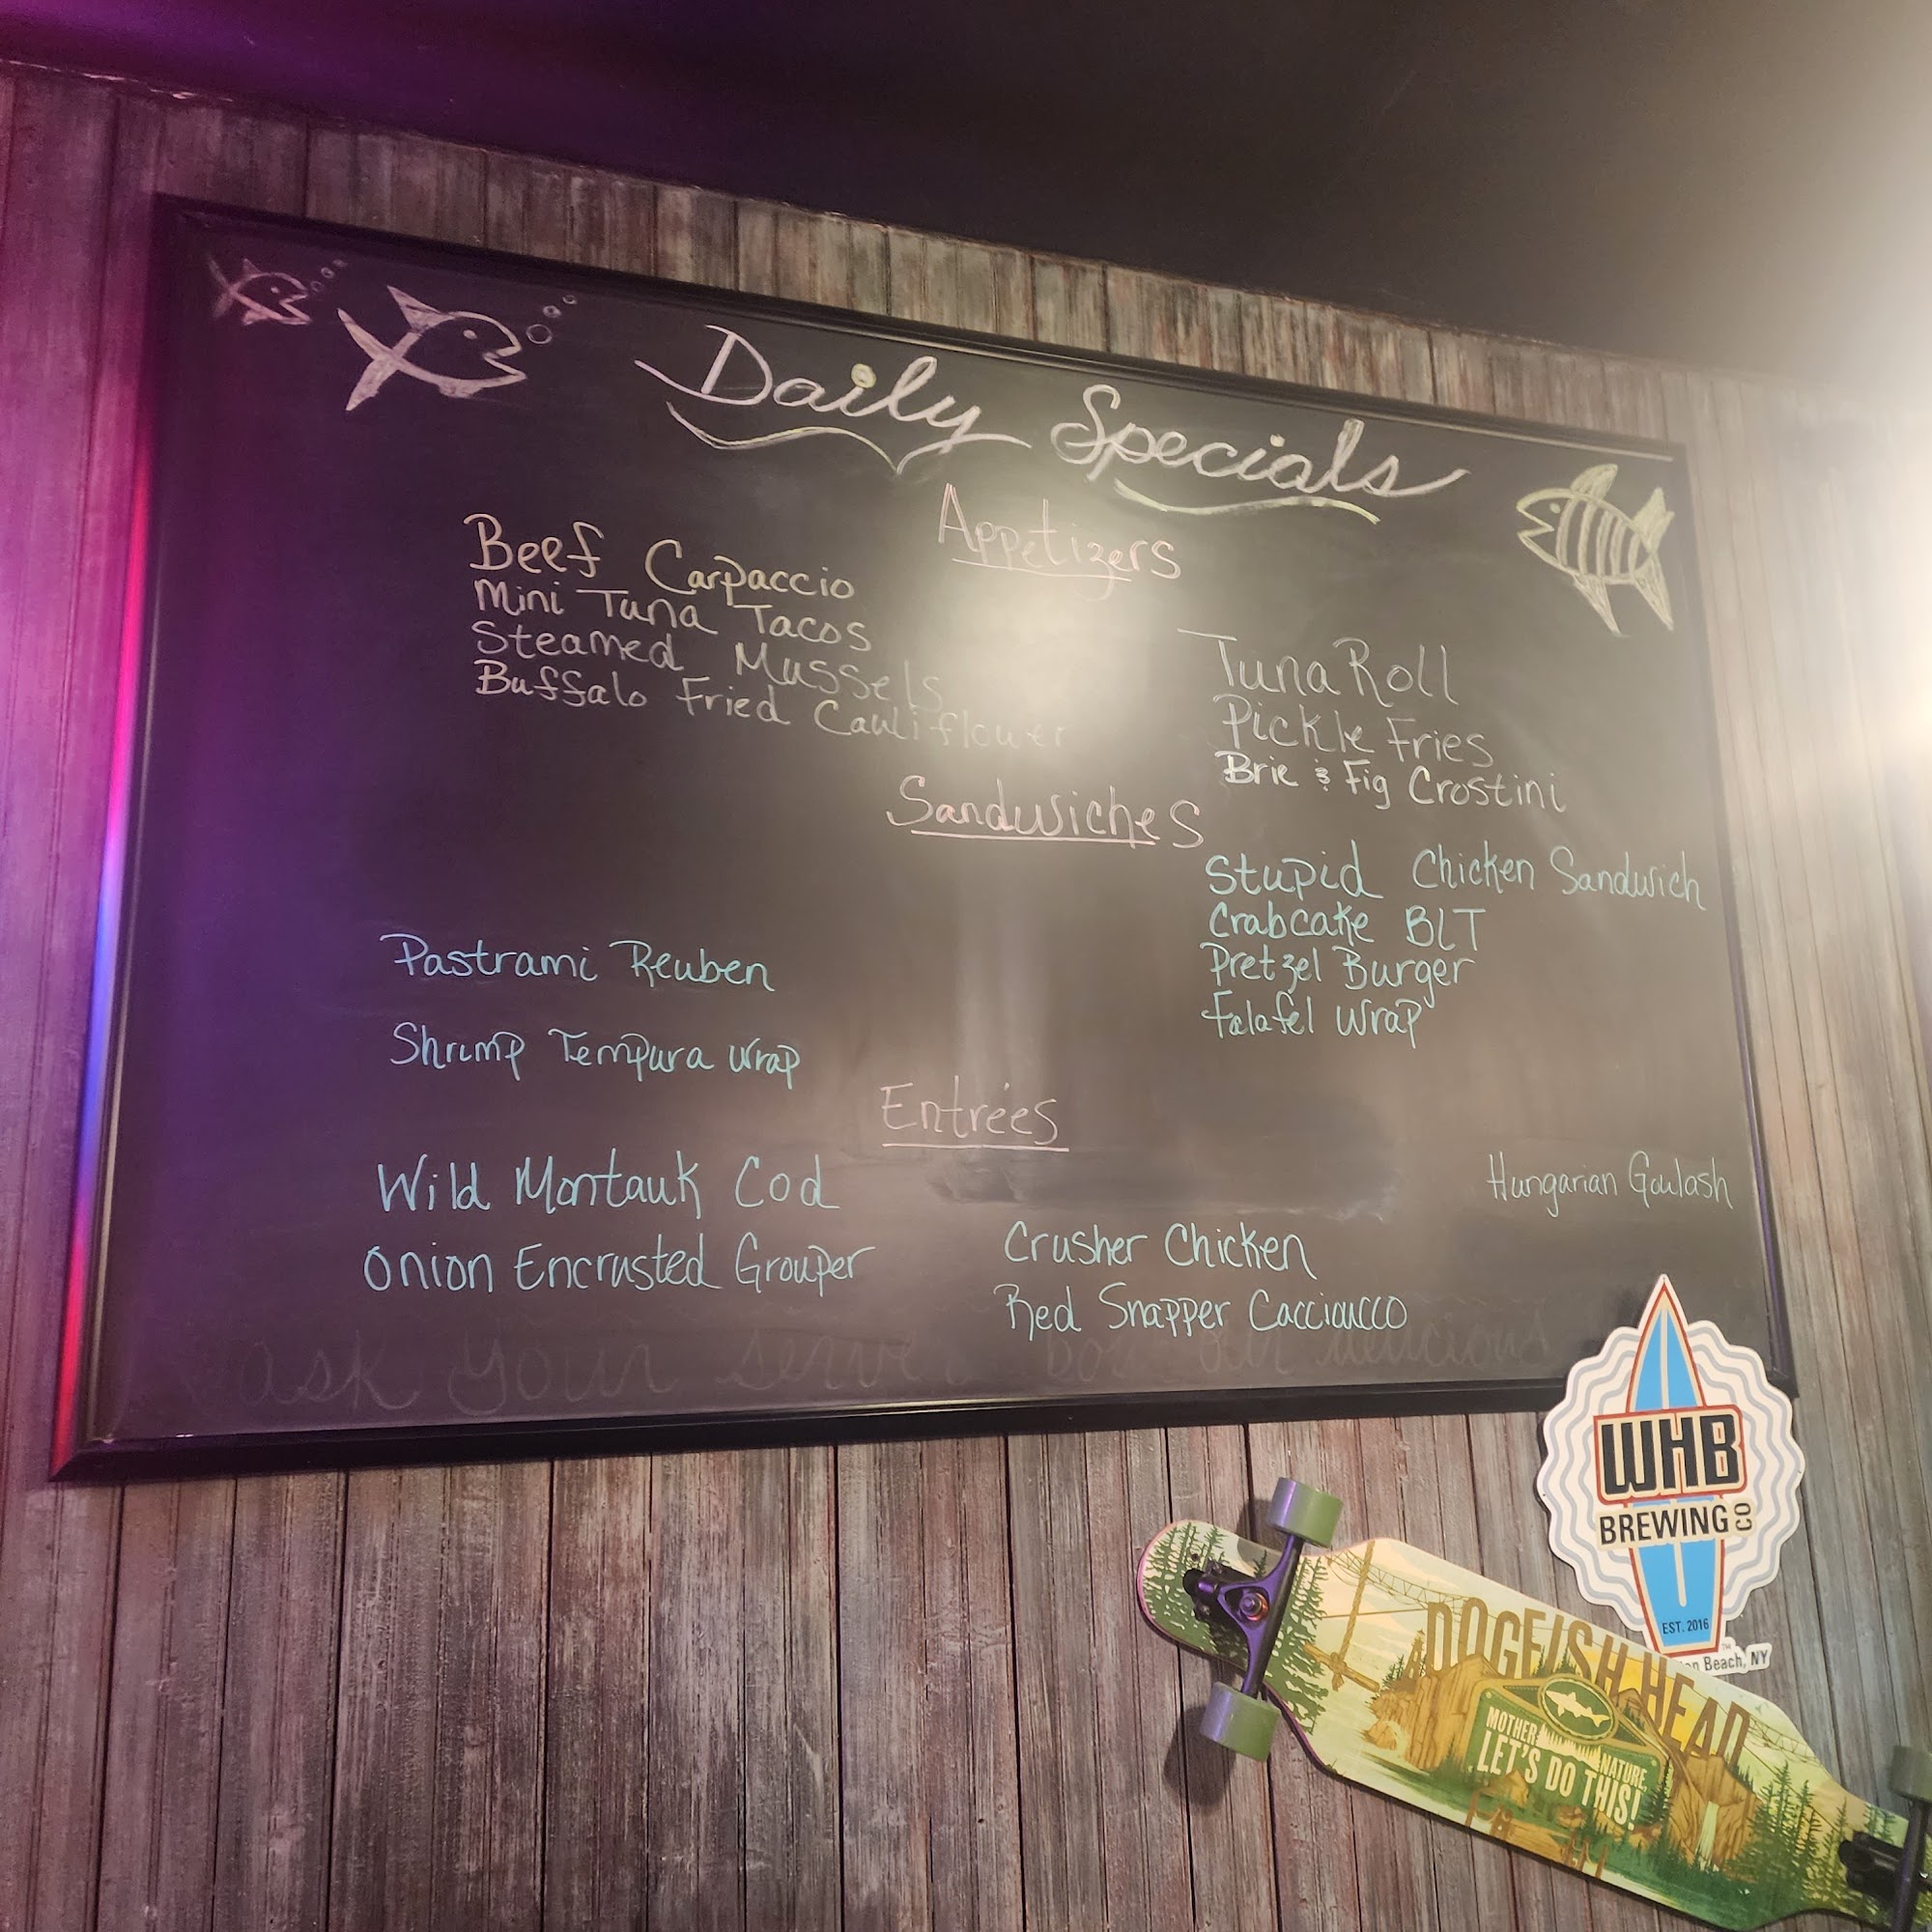 Daily Specials
Appetizers
Beef Carpaccio
Mini Tuna Tacos
Steamed Mussels
Buffalo Fried Cauliflower
Tuna Roll
Pickle Fries
Brie & Fig Crostini
Sandwiches
Pastrami Reuben
Shrimp Tempura Wrap
Stupid Chicken Sandwich
Crabcake BLT
Pretzel Burger
Falafel Wrap
Entreés
Wild Montauk Cod
Onion Encrusted Grouper
Crusher Chicken
Red Snapper Cacciaucco
Hungarian Goulash
ask your
delicious
WHB
BREWING CO
EST. 2016
Beach, NY
DOGFISH HEAD
MOTHER NATURE,
LET'S DO THIS!